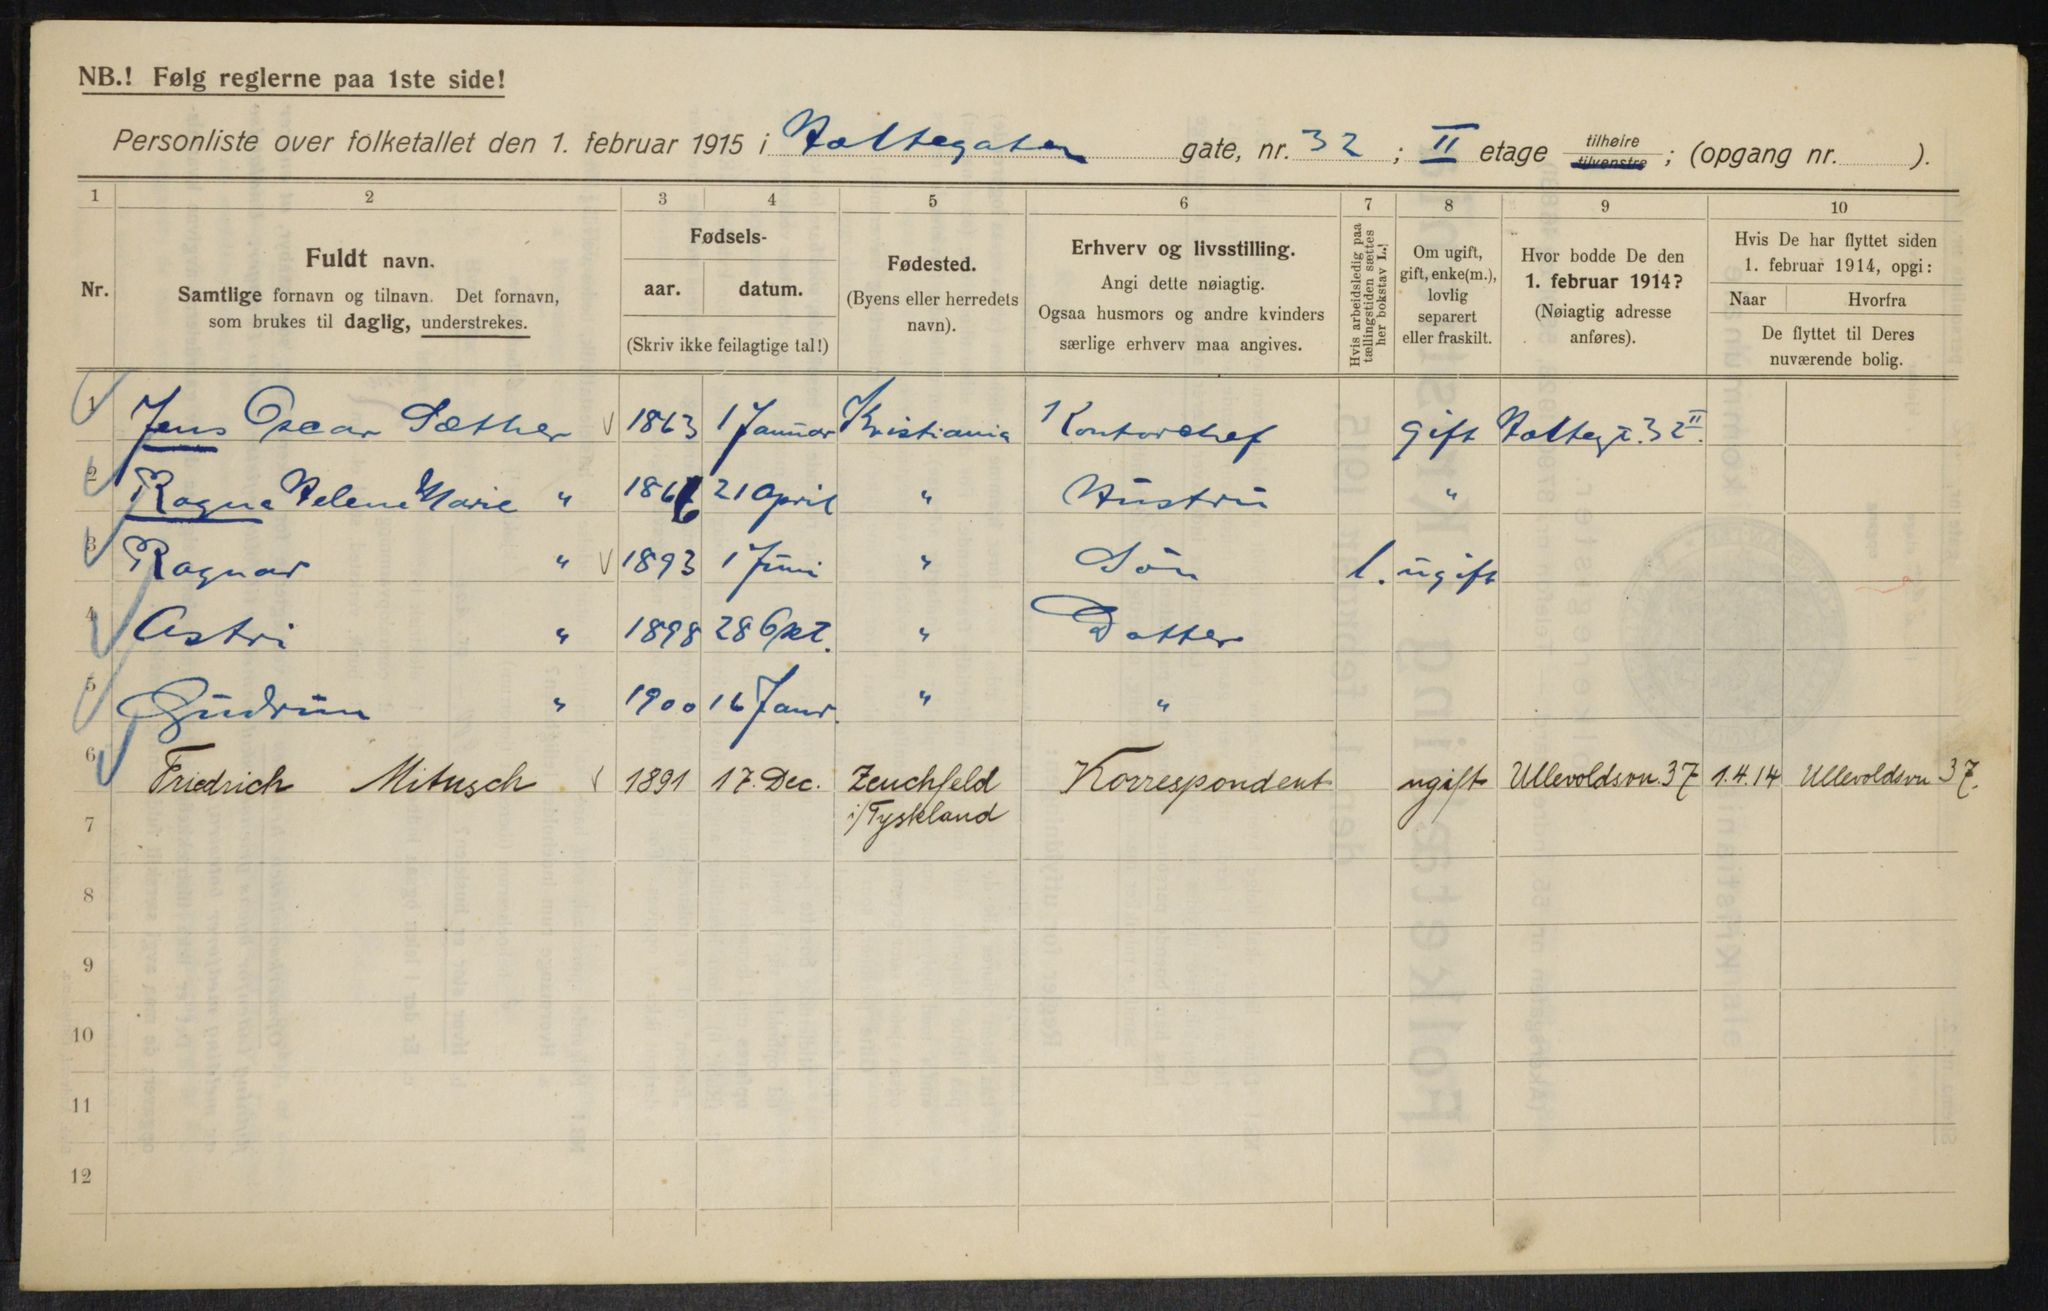 NB.! Følg reglerne paa 1ste side!
Personliste over folketallet den 1. februar 1915 i Holtegaten gate, nr. 32 ; II etage tilhøire tilvenstre ; (opgang nr. ).
1 2 3 4 5 6 7 8 9 10
Nr.
Fuldt navn.
Samtlige fornavn og tilnavn. Det fornavn,
som brukes til daglig, understrekes.
Fødsels-
aar. datum.
(Skriv ikke feilagtige tal!)
Fødested.
(Byens eller herredets
navn).
Erhverv og livsstilling.
Angi dette nøiagtig.
Ogsaa husmors og andre kvinders
særlige erhverv maa angives.
Hvis arbeidsledig paa
tællingstiden sættes
her bokstav L.!
Om ugift,
gift, enke(m.),
lovlig
separert
eller fraskilt.
Hvor bodde De den
1. februar 1914?
(Nøiagtig adresse
anføres).
Hvis De har flyttet siden
1. februar 1914, opgi:
Naar Hvorfra
De flyttet til Deres
nuværende bolig.
1 Jens Oscar Sæther 1863 1 Januar Kristiania Kontorchef gift Holtegt. 32 II.
2 Ragna Helene Marie " 1866 21 April " Hustru "
3 Ragnar " 1893 1 Juni " Søn l. ugift
4 Astri " 1898 28 Okt. " Datter
5 Gudrun " 1900 16 Janr. " "
6 Friedrich Mitusch 1891 17. Dec. Zeuchfeld Korrespondent ugift Ullevoldsvn. 37 1.4.14 Ullevoldsvn 37.
7 i/Tyskland
8
9
10
11
12